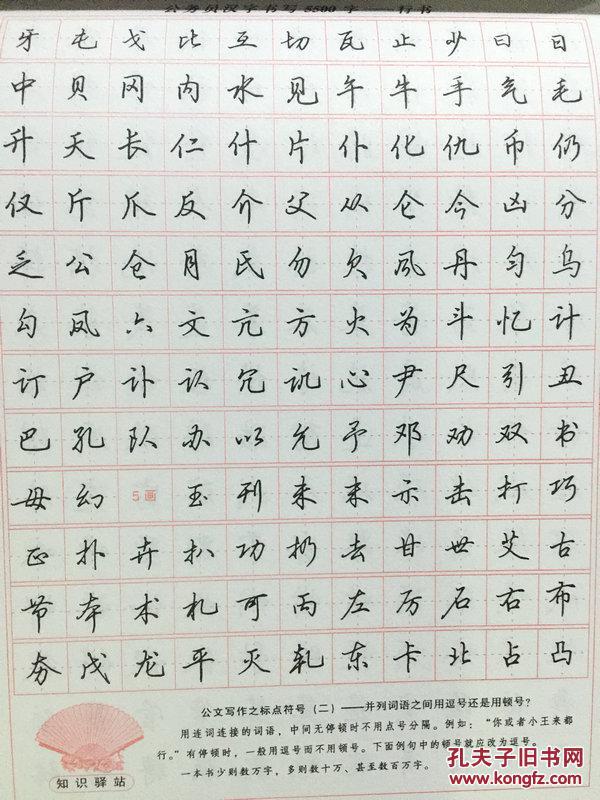 公务员汉字书写5500字——行书
牙 屯 戈 比 互 切 瓦 止 少 曰 日
中 贝 冈 内 水 见 午 牛 手 气 毛
升 夭 长 仁 什 片 仆 化 仇 币 仍
仅 斤 爪 反 介 父 从 仑 今 凶 分
乏 公 仓 月 氏 勿 欠 风 丹 匀 乌
勾 凤 六 文 亢 方 火 为 斗 忆 计
订 户 讣 认 冗 讥 心 尹 尺 引 丑
巴 孔 队 办 以 允 予 邓 劝 双 书
毋 幻 5画 玉 刊 末 未 示 击 打 巧
正 扑 卉 扒 功 扔 去 甘 世 艾 古
节 本 术 札 可 丙 左 厉 石 右 布
夯 戊 龙 平 灭 轧 东 卡 北 占 凸
公文写作之标点符号（二）——并列词语之间用逗号还是用顿号？
用连词连接的词语，中间无停顿时不用点号分隔。例如：“你或者小王来都
行。”有停顿时，一般用逗号而不用顿号。下面例句中的顿号就应改为逗号。
一本书少则数万字，多则数十万、甚至数百万字。
知识驿站
孔夫子旧书网
www.kongfz.com